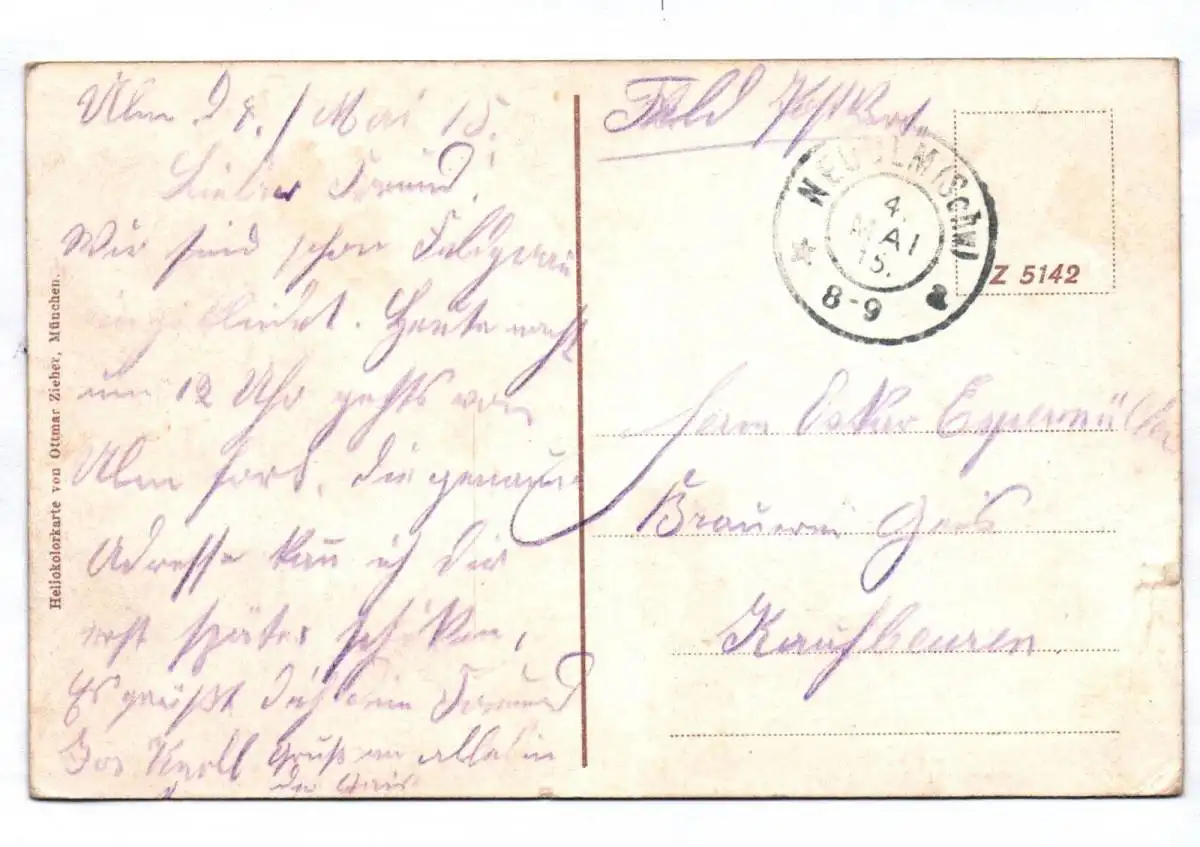 Ulm d 4./ Mai 15.
Lieber Freund!
Wir sind schon Feldgrau
eingekleidet. Heute nacht
um 12 Uhr gehts von
Ulm ford. die genaue
Adresse kan ich dir
erst später schiken,
Es grüßt dich dein Freund
Jos Gruß an alle in
der Gais
Heliokolorkarte von Ottmar Zieher, München.
Feld Postkart.
NEU-ULM (Schw)
4.
MAI
15.
8-9
Z 5142
Herrn Oskar Espermüller
Brauerei Gais
Kaufbeuren